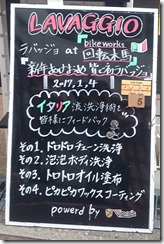 LAVAGGIO
ラバッジョ at bikeworks 回転木馬
新年あけおめ 皆でラバッジョ
2-17,1,4
イタリア流洗浄術を
皆様にフィードバック
その1、ドロドロチェーン洗浄
その2、泡泡ボディ洗浄
その3、トロトロオイル塗布
その4、ピカピカワックスコーティング
powerd by